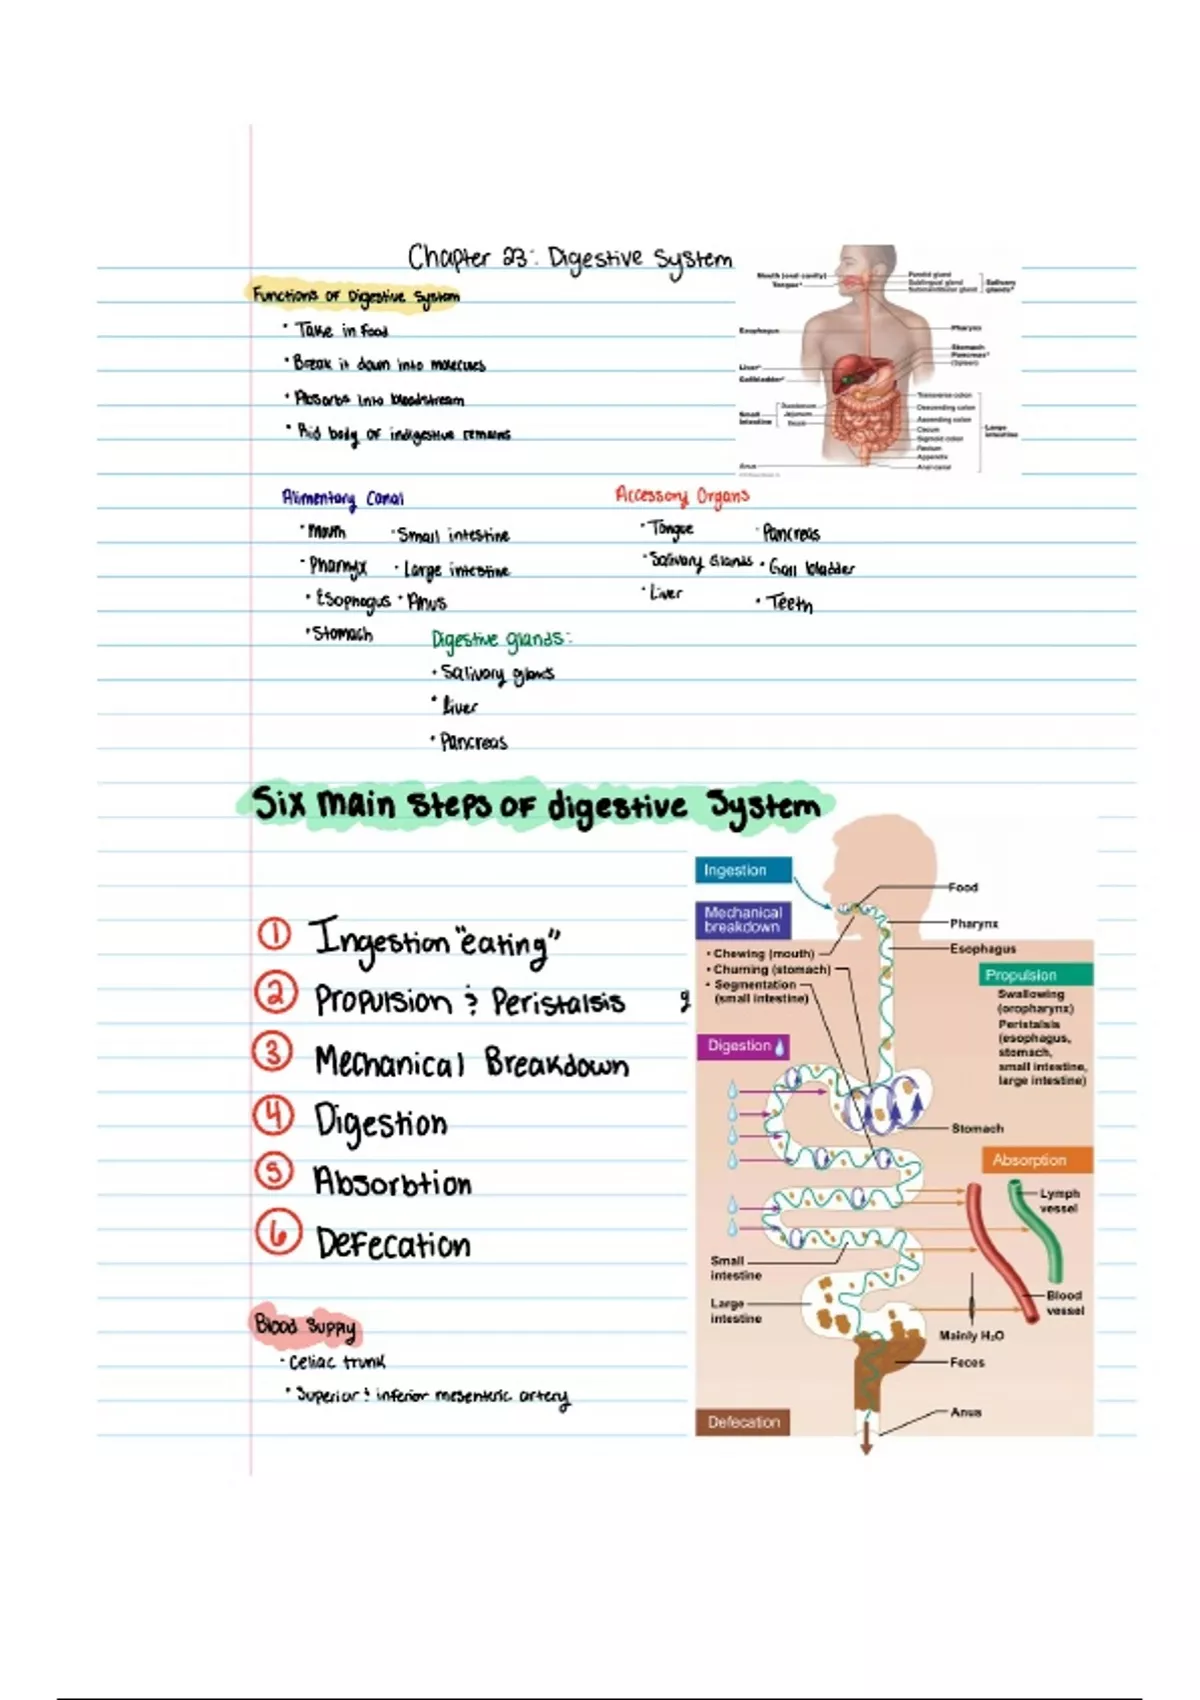 Chapter 23: Digestive System
Functions of Digestive System
• Take in food
• Break it down into molecules
• Absorbs into bloodstream
• Rid body of indigestive remains
Mouth (oral cavity)
Tongue*
Esophagus
Liver*
Gallbladder*
Small intestine
Duodenum
Jejunum
Ileum
Anus
Parotid gland
Sublingual gland
Submandibular gland
Salivary glands*
Pharynx
Stomach
Pancreas*
(Spleen)
Transverse colon
Descending colon
Ascending colon
Cecum
Sigmoid colon
Rectum
Appendix
Anal canal
Large intestine
Alimentary Canal
• Mouth • Small intestine
• Pharnyx • Large intestine
• Esophagus • Anus
• Stomach
Accessory Organs
• Tongue • Pancreas
• Salivary Glands • Gall bladder
• Liver • Teeth
Digestive glands:
• Salivary glands
• Liver
• Pancreas
Six main steps of digestive System
① Ingestion "eating"
② Propulsion & Peristalsis
③ Mechanical Breakdown
④ Digestion
⑤ Absorbtion
⑥ Defecation
Blood Supply
• Celiac trunk
• Superior & inferior mesenteric artery
Ingestion
Mechanical
breakdown
• Chewing (mouth)
• Churning (stomach)
• Segmentation
(small intestine)
Digestion
Food
Pharynx
Esophagus
Propulsion
Swallowing
(oropharynx)
Peristalsis
(esophagus,
stomach,
small intestine,
large intestine)
Stomach
Absorption
Lymph
vessel
Small
intestine
Large
intestine
Blood
vessel
Mainly H₂O
Feces
Anus
Defecation